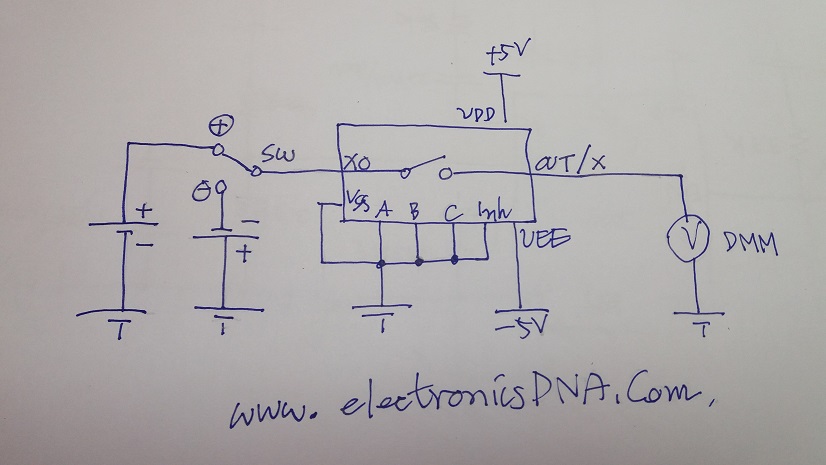 +5V
VDD
⊕
SW
X0
OUT/X
⊖
+
-
-
+
VSS
A
B
C
Inh
VEE
V
DMM
-5V
www.electronicsDNA.Com,